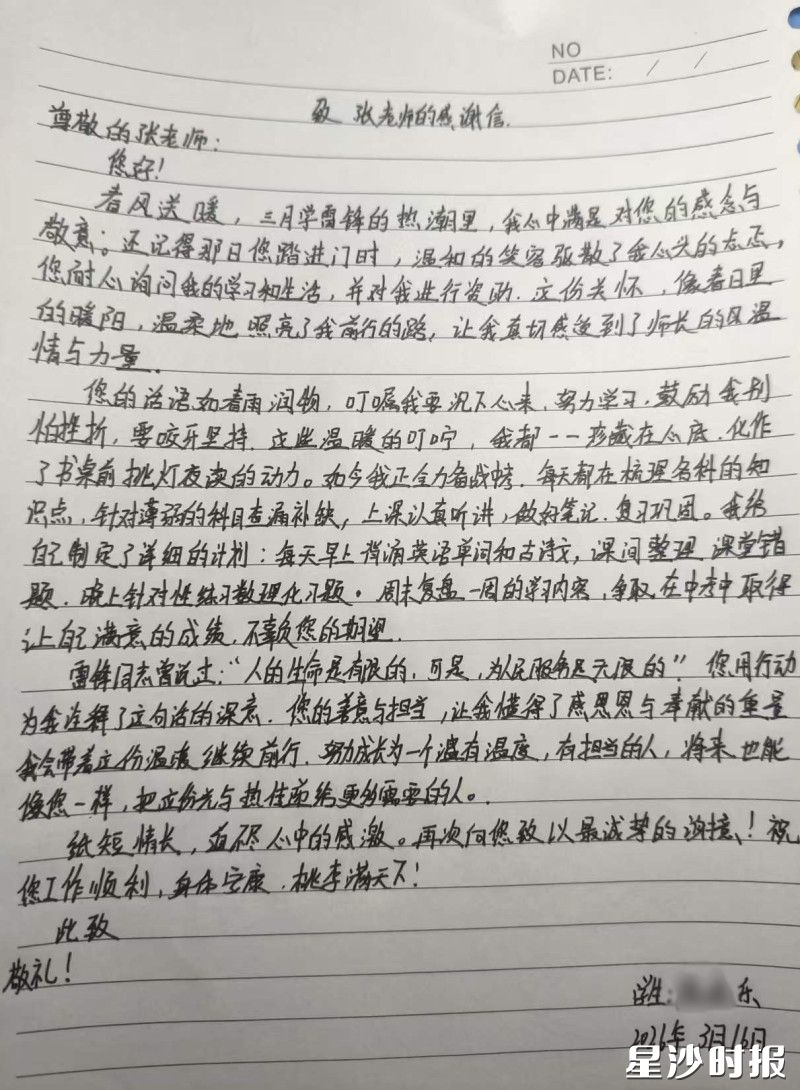 NO
DATE: / /
致 张老师的感谢信.
尊敬的张老师:
您好!
春风送暖, 三月学雷锋的热潮里, 我心中满是对您的感念与
敬意。还记得那日您踏进门时, 温和的笑容驱散了我心头的忐忑。
您耐心询问我的学习和生活, 并对我进行资助. 这份关怀, 像春日里
的暖阳, 温柔地照亮了我前行的路, 让我真切感受到了师长的温
情与力量.
您的话语如春雨润物, 叮嘱我要沉下心来, 努力学习, 鼓励我别
怕挫折, 要咬牙坚持. 这些温暖的叮咛, 我都一一珍藏在心底. 化作
了书桌前挑灯夜读的动力。如今我正全力备战中考. 每天都在梳理各科的知
识点, 针对薄弱的科目查漏补缺, 上课认真听讲, 做好笔记. 复习巩固。我给
自己制定了详细的计划: 每天早上背诵英语单词和古诗文, 课间整理课堂错
题. 晚上针对性练习数理化习题. 周末复盘一周的学习内容, 争取在中考中取得
让自己满意的成绩, 不辜负您的期望.
雷锋同志曾说过: “人的生命是有限的, 可是, 为人民服务是无限的” 您用行动
为我诠释了这句话的深意. 您的善意与担当, 让我懂得了感恩与奉献的重量
我会带着这份温暖继续前行. 努力成长为一个有温度, 有担当的人, 将来也能
像您一样, 把这份光与热传递给更多需要的人。
纸短情长, 道不尽心中的感激。再次向您致以最诚挚的谢意! 祝
您工作顺利, 身体安康. 桃李满天下!
此致
敬礼!
学生: 乐
2026年 3月16日
星沙时报